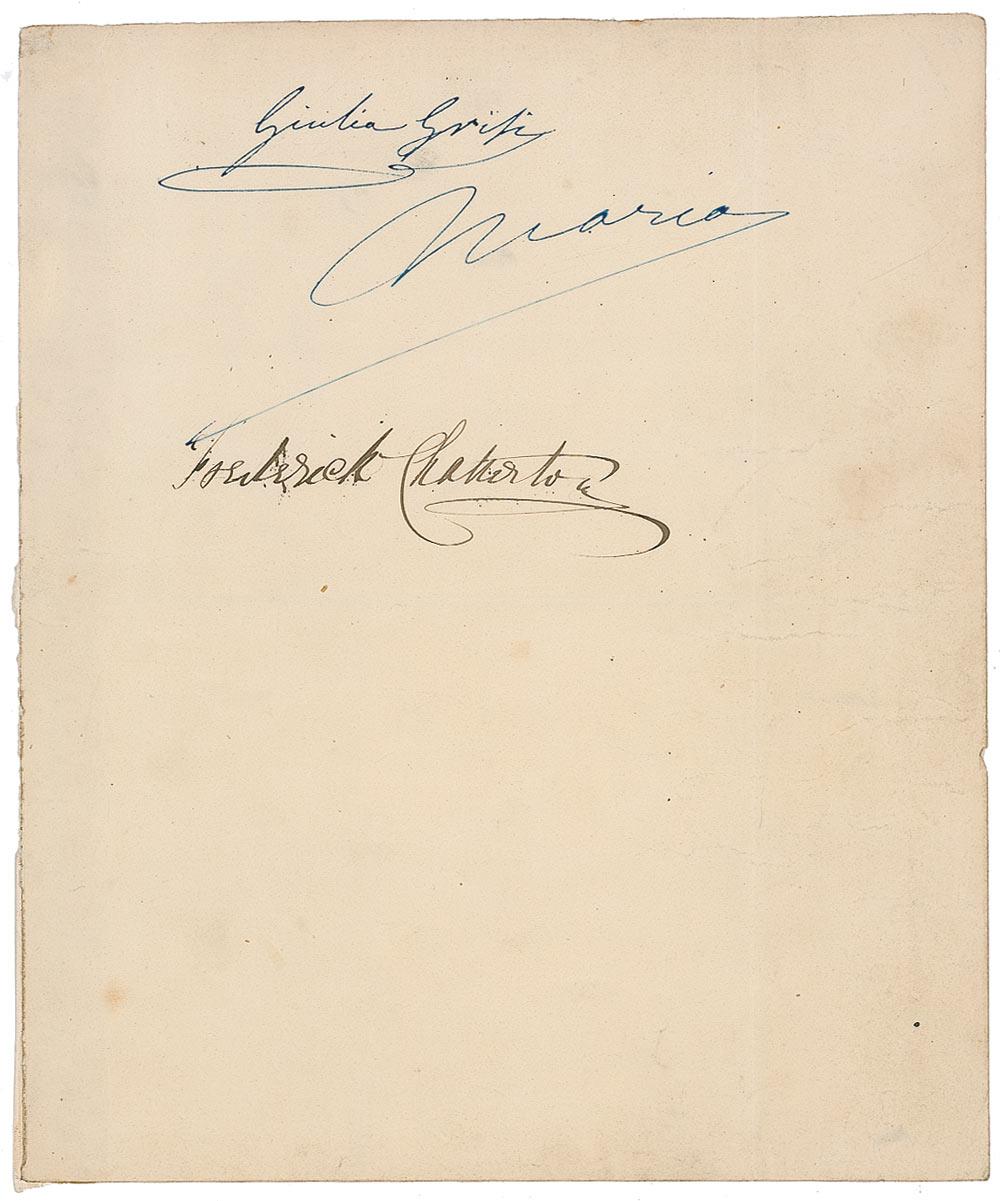 Giulia Grisi
Mario
Frederick Chatterton